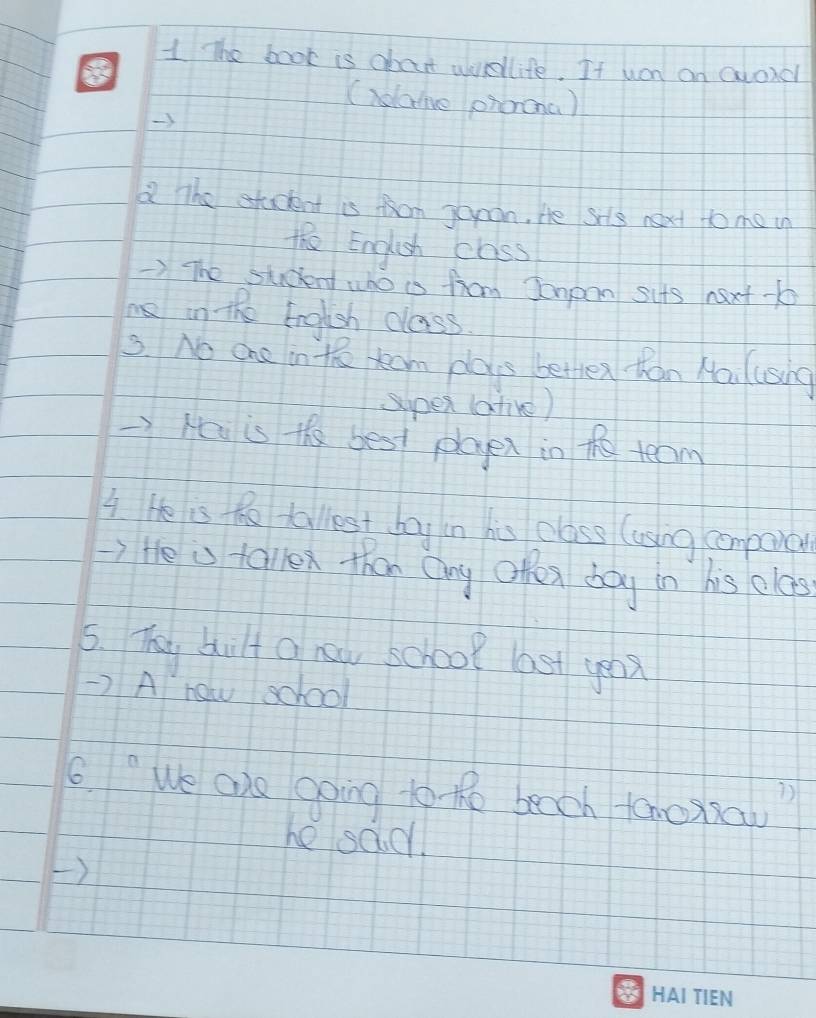 1 The book is about wildlife. It won an award
(relative pronoun)
→
2 The student is from japan. He sits next to me in
the English class
→ The student who is from Janpan sits next to
me in the English class.
3. No one in the team plays better than Mai (using
superlative)
→ Mai is the best player in the team
4. He is the tallest boy in his class (using comparati
→ He is taller than any other boy in his clas
5. They built a new school last year
→ A new school
6. "We are going to the beach tomorrow"
he said.
→
HAI TIEN